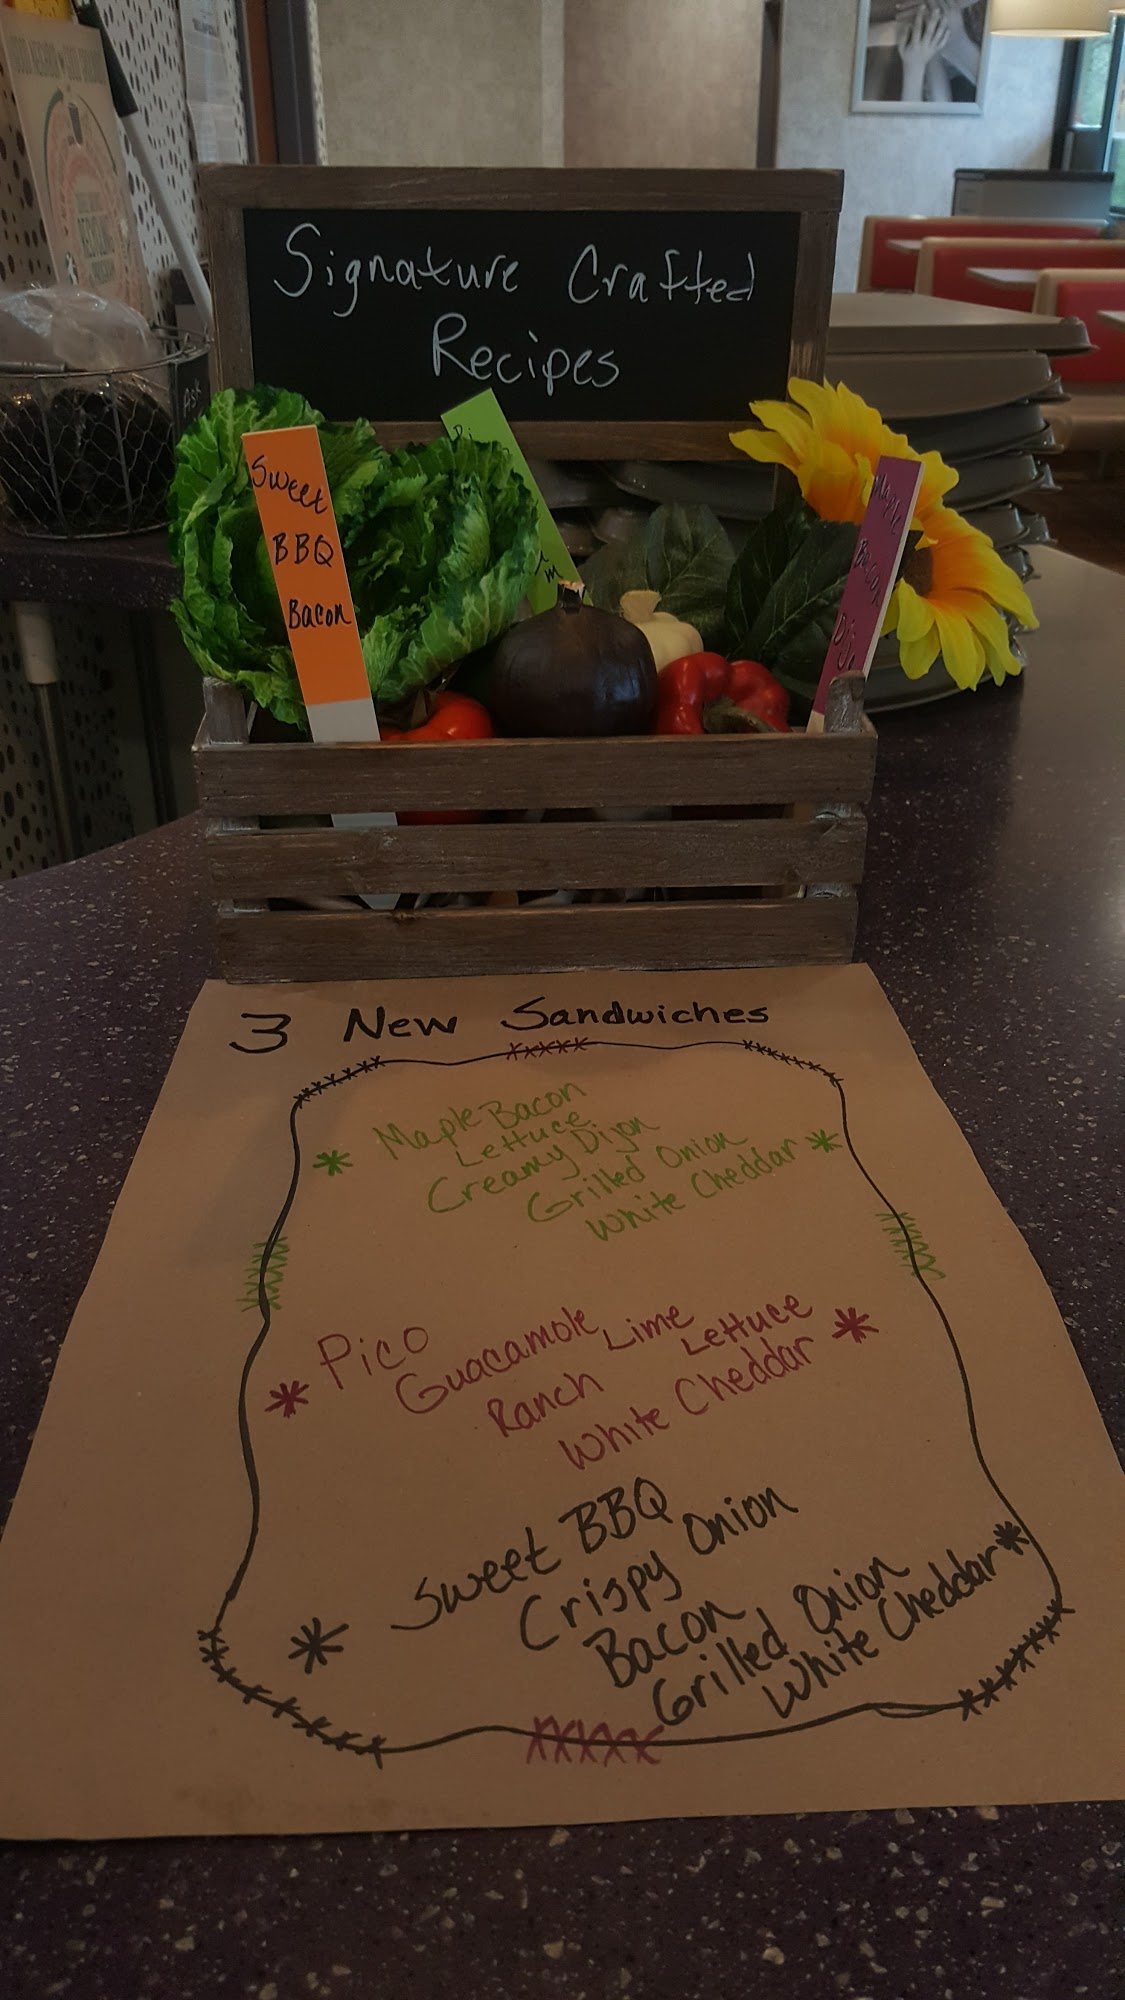 Signature Crafted
Recipes
Sweet
BBQ
Bacon
Maple
Bacon
3 New Sandwiches
Maple Bacon
Lettuce
Creamy Dijon
Grilled Onion
White Cheddar
Pico
Guacamole Lime Lettuce
Ranch
White Cheddar
Sweet BBQ
Crispy Onion
Bacon
Grilled Onion
White Cheddar